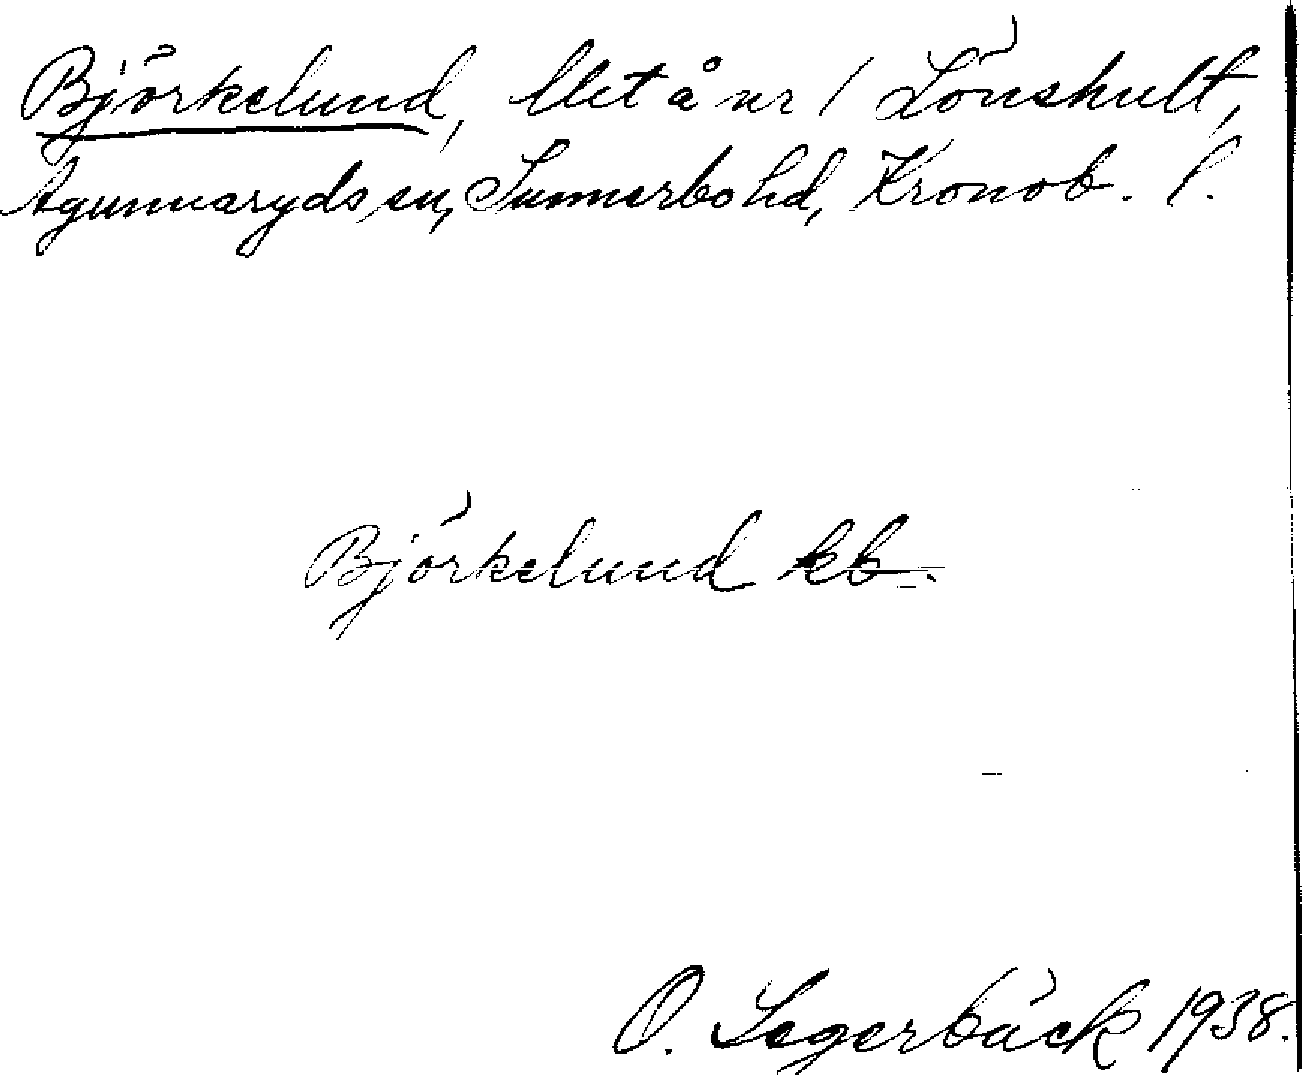 Björkelund, lht å nr 1 Lönshult,
Agunnaryds sn, Sunnerbo hd, Kronob. l.
Björkelund kb.
O. Segerbäck 1938.